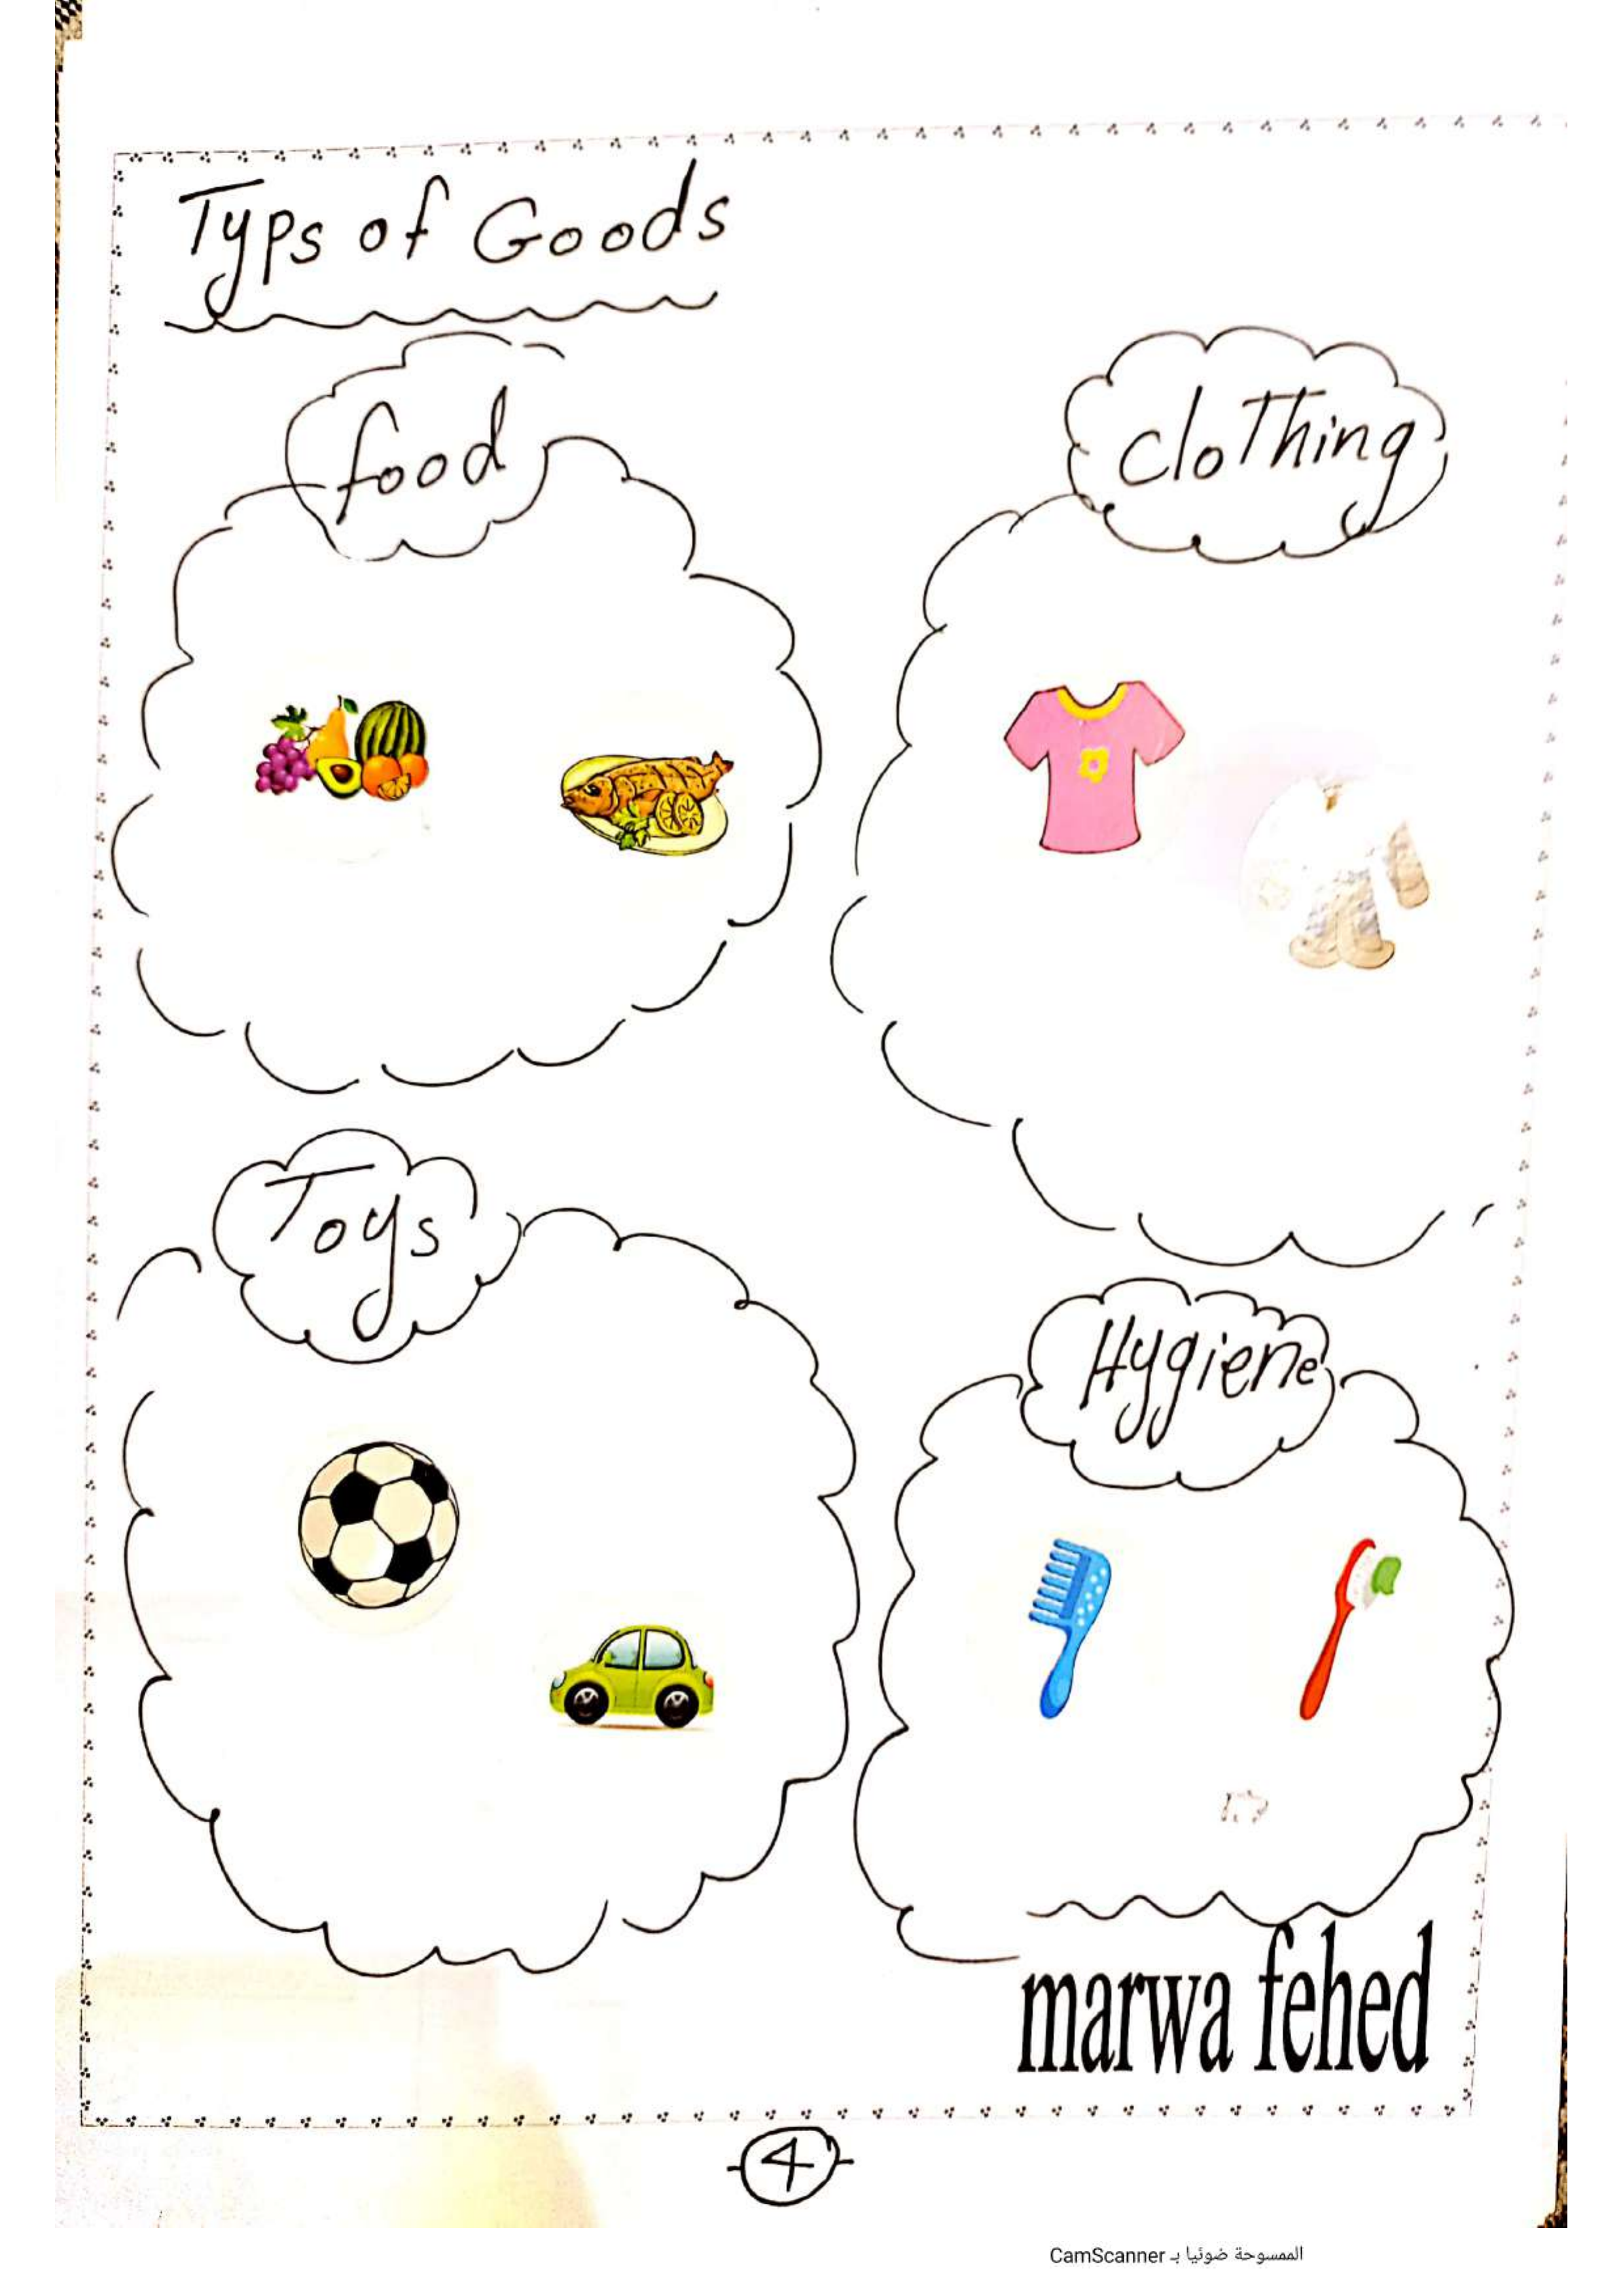 Typs of Goods
food
cloThing
Toys
Hygiene
marwa fehed
4
الممسوحة ضوئيا بـ CamScanner